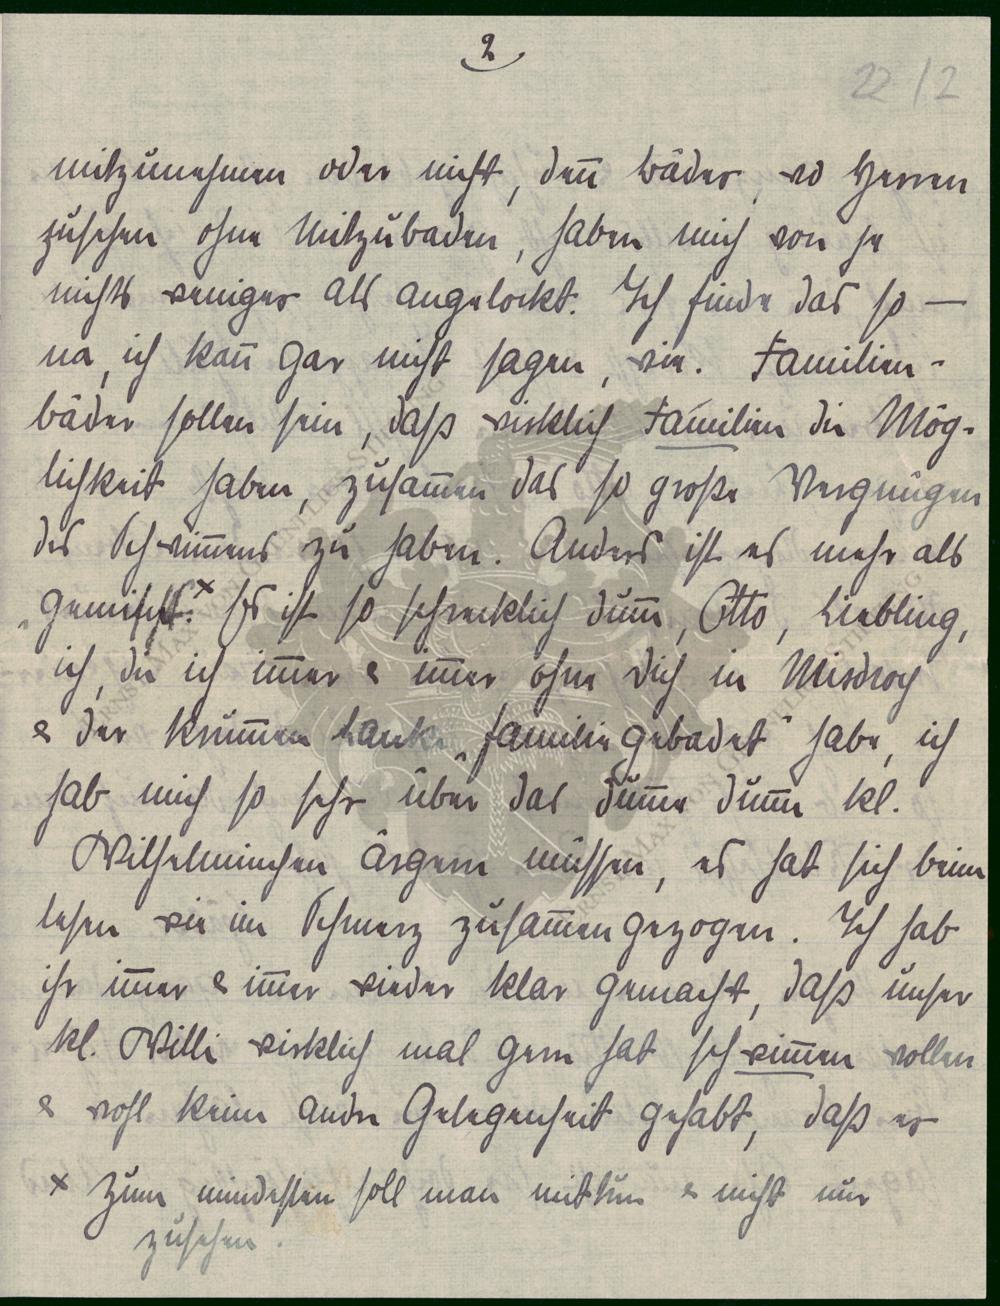 2
22/2
mitzunehmen oder nicht, denn Bäder, wo Herren
zusehen ohne Mitzubaden, haben mich von je
nichts weniger als angelockt. Ich finde das so —
na, ich kann gar nicht sagen, wie. Familien-
bäder sollen sein, daß wirklich Familien die Mög-
lichkeit haben, zusammen das so große Vergnügen
des Schwimmens zu haben. Anders ist es mehr als
„gemischt.“ x Es ist so schrecklich dumm, Otto, Liebling,
ich, die ich immer & immer ohne Dich in Misdroy
& der krummen Lanke „familiegebadet“ habe, ich
hab mich so sehr über das dumme dumme kl.
Wilhelminchen ärgern müssen, es hat sich beim
lesen wie im Schmerz zusammengezogen. Ich hab
ihr immer & immer wieder klar gemacht, daß unser
kl. Willi wirklich mal gern hat schwimmen wollen
& wohl keine andre Gelegenheit gehabt, daß er
x Zum mindesten soll man mittun & nicht nur
zusehen.